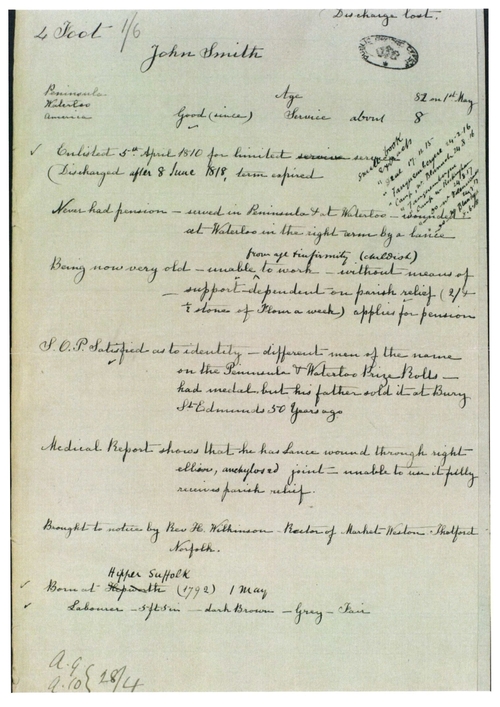 Discharge lost.
4 Foot 1/6
John Smith
Peninsula
Waterloo
America
Age 82 on 1st May
Good (since) Service about 8
Enlisted 5th April 1810 for limited service
(Discharged after 8 June 1818, term expired
Never had pension – served in Peninsula & at Waterloo – wounded
at Waterloo in the right arm by a lance
from age & infirmity (childish)
Being now very old – unable to work – without means of
– support – dependent on parish relief (2/4
& stones of Flour a week) applies for pension
S.O.P. Satisfied as to identity – different men of the name
on the Peninsula & Waterloo Prize Rolls –
had medal but his father sold it at Bury
St Edmunds 50 Years ago
Medical Report shows that he has lance wound through right
elbow, anchylosed joint – unable to use it
receives parish relief.
Brought to notice by Rev H. Wilkinson – Rector of Market Weston
Norfolk.
Hipper Suffolk
Born at (1792) 1 May
Labourer – 5ft 5in – dark Brown – Grey – Fair
A.9
A.10 { 28/4